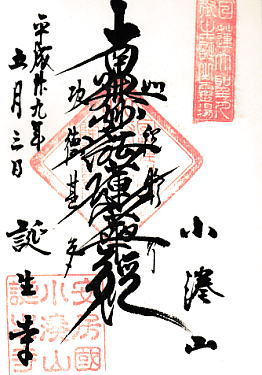 小湊山
如説修行
南無妙法蓮華経
功徳甚多
平成廿九年
五月三日
誕生寺
安房國
小湊山
誕生寺